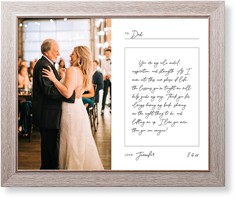 TO: Dad
You are my role model,
inspiration, and strength. As I
move into this new phase of life
the lessons you've taught me will
help guide my way. Thank you for
always having my back, showing
me the right thing to do, and
letting me be me. I love you more
than you can imagine!
FROM: Jennifer